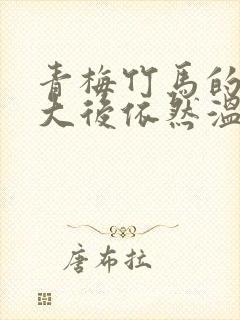 青梅竹馬的
大後依然溫
唐布拉